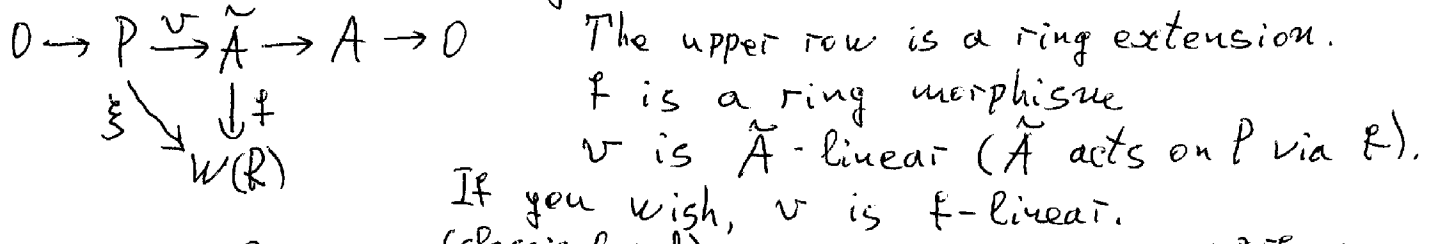 0 → P —v→ Ã → A → 0 The upper row is a ring extension.
ξ ↘ ↓ f f is a ring morphism
W(R) v is Ã-linear (Ã acts on P via f).
If you wish, v is f-linear.